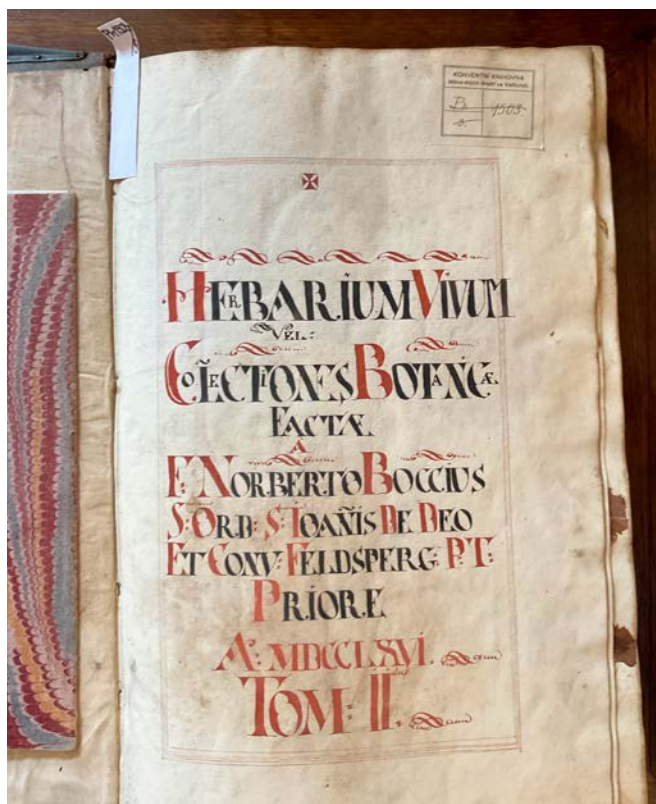 KONVENTNÍ KNIHOVNA
Milosrdných Bratří ve Valticích.
1503
HERBARIUM VIVUM
VEL:
COLLECTIONES BOTANICÆ
FACTÆ
A
F: NORBERTO BOCCIUS
S: ORD: S: IOAÑIS DE DEO
ET CONV: FELDSPERG: P: T:
PRIORE
A: MDCCLXVI.
TOM: II.